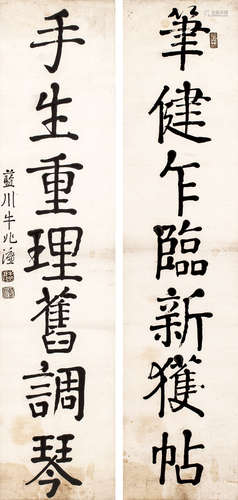 筆健乍臨新獲帖
手生重理舊調琴
藍川牛兆濂